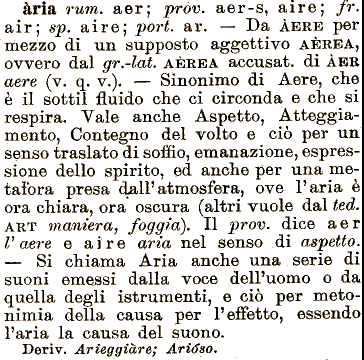 ària rum. aer; prov. aer-s, aire; fr.
air; sp. aire; port. ar. — Da ÀERE per
mezzo di un supposto aggettivo AÈREA,
ovvero dal gr.-lat. AÈREA accusat. di ÀER
aere (v. q. v.). — Sinonimo di Aere, che
è il sottil fluido che ci circonda e che si
respira. Vale anche Aspetto, Atteggia-
mento, Contegno del volto e ciò per un
senso traslato di soffio, emanazione, espres-
sione dello spirito, ed anche per una me-
tafora presa dall'atmosfera, ove l'aria è
ora chiara, ora oscura (altri vuole dal ted.
ART maniera, foggia). Il prov. dice aer
l'aere e aire aria nel senso di aspetto.
— Si chiama Aria anche una serie di
suoni emessi dalla voce dell'uomo o da
quella degli istrumenti, e ciò per meto-
nimia della causa per l'effetto, essendo
l'aria la causa del suono.
Deriv. Arieggiàre; Arióso.